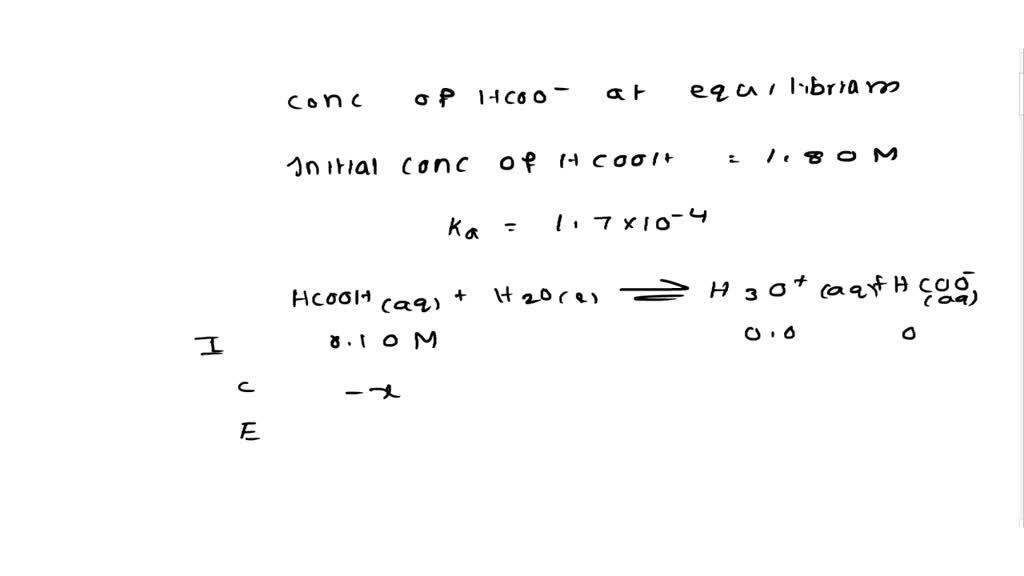 conc of HCOO⁻ at equilibriam
Initial conc of HCOOH = 1.80 M
Ka = 1.7 x 10⁻⁴
HCOOH (aq) + H2O(l) ⇌ H3O⁺ (aq) + HCOO⁻ (aq)
I 0.10 M 0.0 0
C -x
E